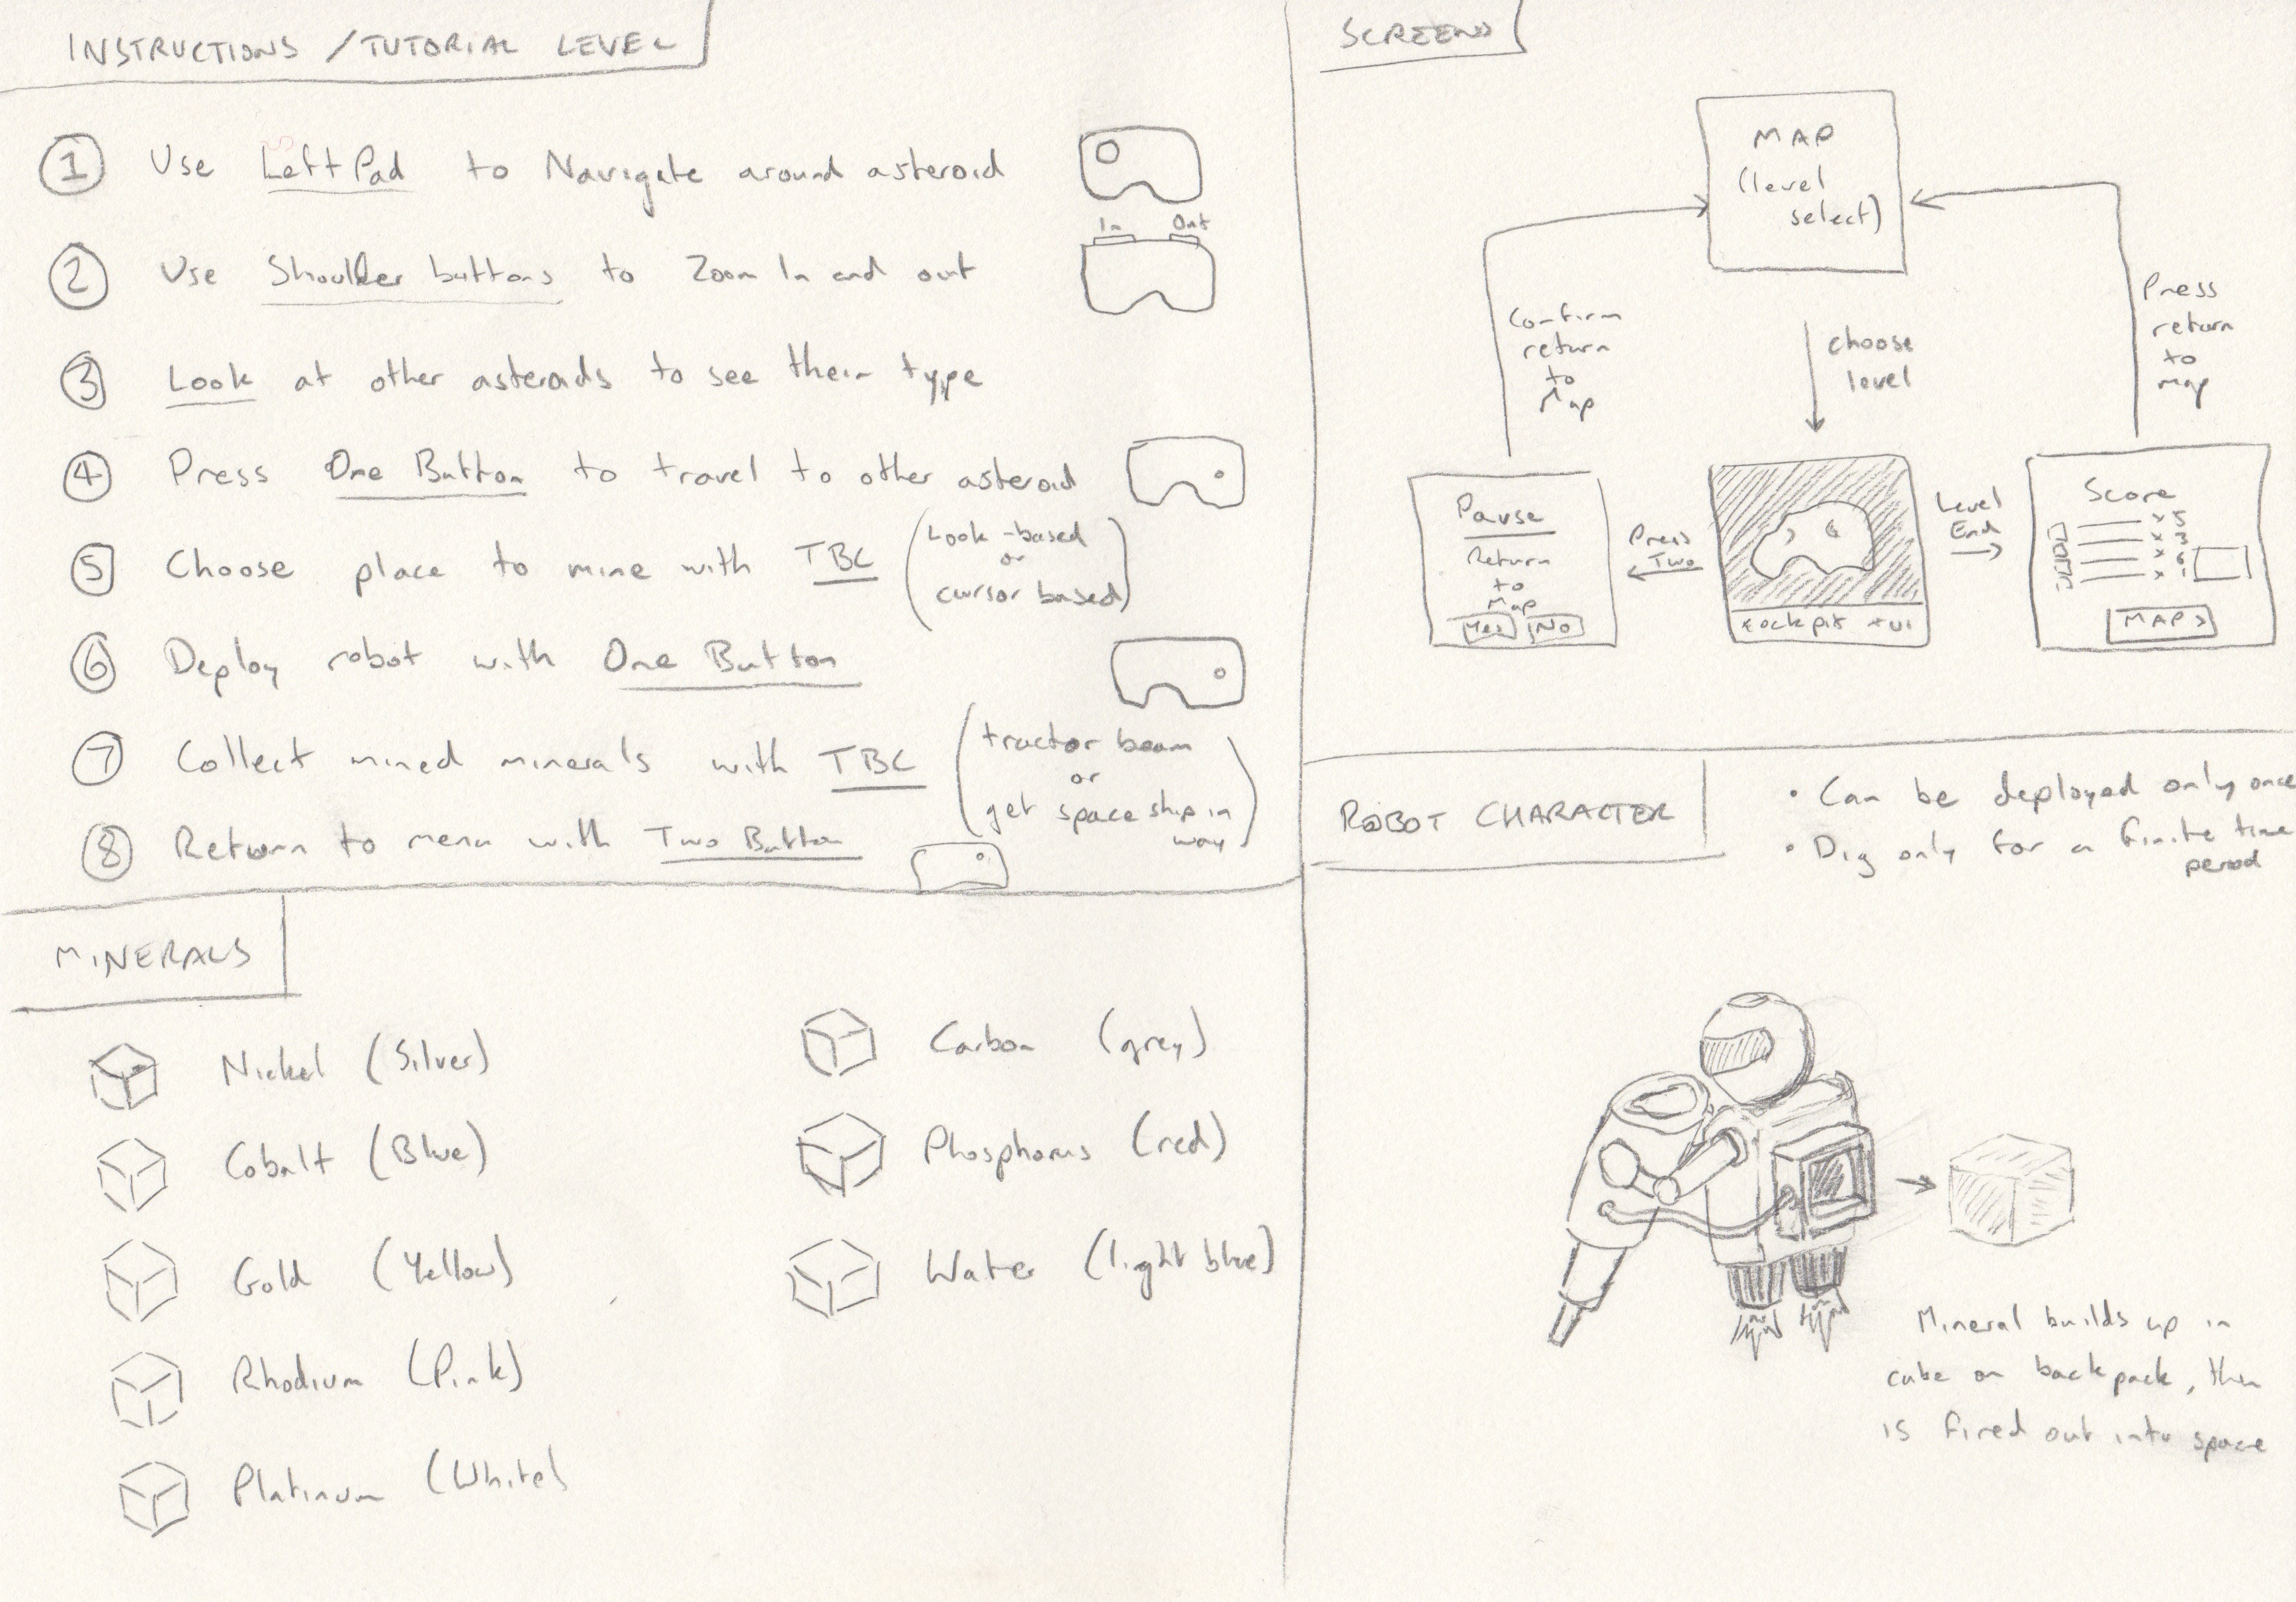 INSTRUCTIONS / TUTORIAL LEVEL
1 Use Left Pad to Navigate around asteroid
In Out
2 Use Shoulder buttons to Zoom In and out
3 Look at other asteroids to see their type
4 Press One Button to travel to other asteroid
5 Choose place to mine with TBC (Look-based
or
cursor based)
6 Deploy robot with One Button
7 Collect mined minerals with TBC (tractor beam
or
get space ship in
way)
8 Return to menu with Two Button
SCREENS
MAP
(level
select)
Confirm
return
to
Map
choose
level
Press
return
to
map
Pause
Return
to
Map
Yes No
Press
Two
cockpit + UI
Level
End
Score
x 5
x 3
x 6
x 1
MAP >
ROBOT CHARACTER
• Can be deployed only once
• Dig only for a finite time
period
Mineral builds up in
cube on backpack, then
is fired out into space
MINERALS
Nickel (Silver)
Cobalt (Blue)
Gold (Yellow)
Rhodium (Pink)
Platinum (White)
Carbon (grey)
Phosphorus (red)
Water (light blue)